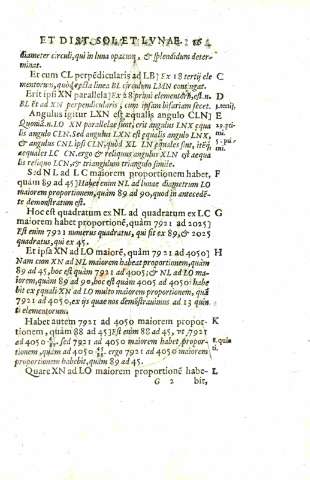 ET DIST. SOL. ET LVNAE. 26
diameter circuli, qui in luna opacum, & splendidum determinat.
Et cum CL perpēdicularis ad LB) Ex 18 tertij elementorum, quod recta linea BL circulum LMN contingat. C
Erit ipsi XN parallela) Ex 28 primi elemento. est. n. BL et ad XN perpendicularis, cum ipsam bifariam secet. D
Angulus igitur LXN est æqualis angulo CLN) E
Quoniā. n. LO XN parallelæ sunt, erit angulus LNX æqualis angulo CLN. Sed angulus LXN est æqualis angulo LNX, & angulus CNL ipsi CLN, quòd XL LN æquales sint, itēq; æquales LC CN. ergo & reliquus angulus XLN est æqualis reliquo LCN, & triangulum triangulo simile.
Sed NL ad LC maiorem proportionem habet, quàm 89 ad 45) Habet enim NL ad lunæ diametrum LO maiorem proportionem, quàm 89 ad 90, quod in antecedēte demonstratum est. F
Hoc est quadratum ex NL ad quadratum ex LC maiorem habet proportionē, quàm 7921 ad 2025) G
Est enim 7921 numerus quadratus, qui fit ex 89, & 2025 quadratus, qui ex 45.
Et ipsa XN ad LO maiorē, quàm 7921 ad 4050) H
Nam cum XN ad NL maiorem habeat proportionem, quàm 89 ad 45, hoc est quàm 7921 ad 4005: & NL ad LO maiorem, quàm 89 ad 90, hoc est quàm 4005 ad 4050: habebit ex æquali XN ad LO multo maiorem proportionem, quā 7921 ad 4050, ex ijs quæ nos demōstrauimus ad 13 quinti elementorum.
Habet autem 7921 ad 4050 maiorem proportionem, quàm 88 ad 45) K
sed 7921 ad 4050 maiorem habet proportionem, quàm ad 4050 ergo 7921 ad 4050 maiorem proportionem habebit, quàm 88 ad 45.
Quare XN ad LO maiorem proportionē habe- L
G 2 bit,